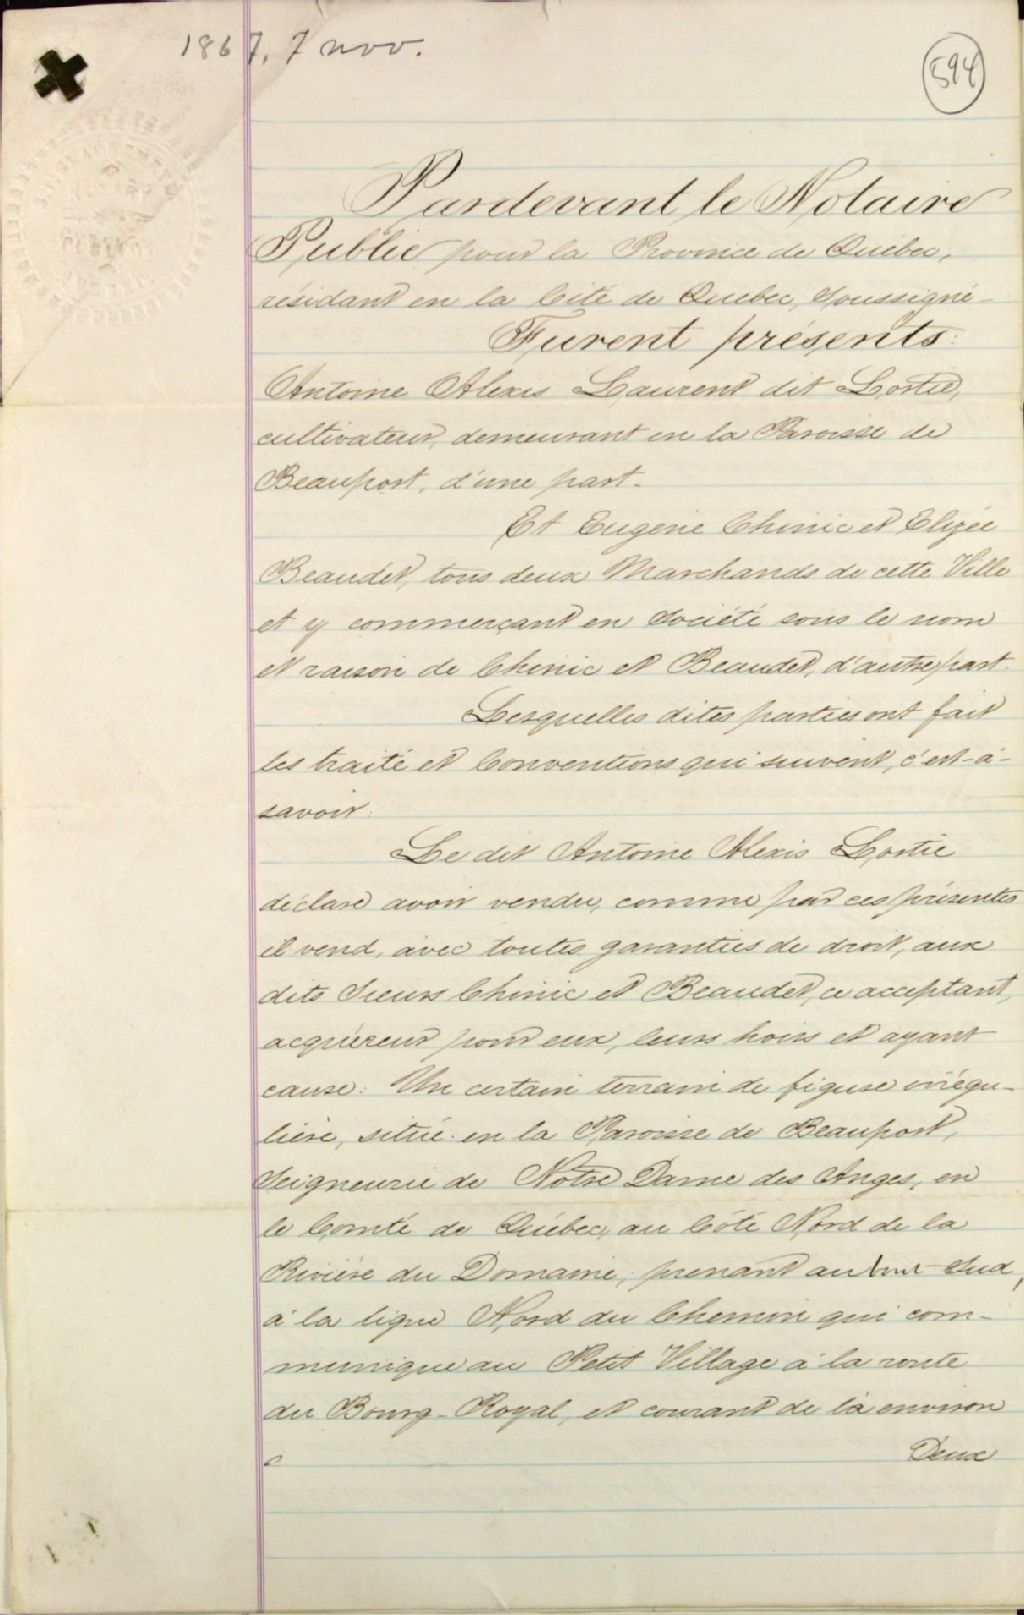 1867, 7 nov.
594
Pardevant le Notaire
Public pour la Province de Québec,
résidant en la Cité de Quebec, Soussigné -
Furent présents:
Antoine Alexis Laurent dit Lortie,
cultivateur, demeurant en la Paroisse de
Beauport, d'une part.
Et Eugène Chinic et Elizée
Beaudet, tous deux Marchands de cette Ville
et y commerçant en Société sous le nom
et raison de Chinic et Beaudet, d'autre part.
Lesquelles dites parties ont fait
les traité et Conventions qui suivent, c'est-à-
savoir:
Le dit Antoine Alexis Lortie
déclare avoir vendu, comme par ces présentes
il vend, avec toutes garanties de droit, aux
dits Sieurs Chinic et Beaudet, ce acceptant,
acquéreur pour eux, leurs hoirs et ayant
cause: Un certain terrain de figure irrégu-
lière, situé en la Paroisse de Beauport,
Seigneurie de Notre Dame des Anges, en
le Comté de Québec, au Côté Nord de la
Rivière du Domaine, prenant au bout Sud,
à la ligne Nord du Chemin qui com-
munique au Petit Village à la route
du Bourg-Royal, et courant de là environ
Deux